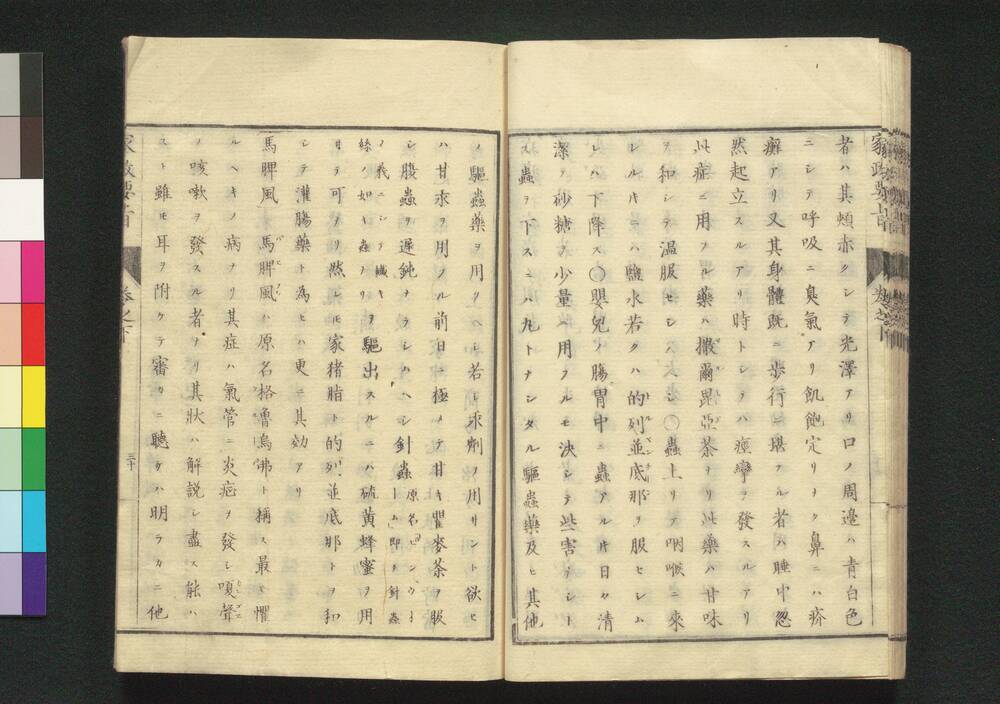 家政要旨 卷之下
者ハ其頰赤クシテ光澤アリ口ノ周邊ハ青白色
ニシテ呼吸ニ臭氣アリ飢飽定リナク鼻ニハ疥
癬アリ又其身體既ニ歩行ニ堪フル者ハ睡中忽
然起立スルアリ時トシテハ痙攣ヲ發スルアリ
此症ニ用フル藥ハ撒爾毘亞茶ナリ此藥ハ甘味
ヲ和シテ温服セシム
〇蟲上リテ咽喉ニ來
レル時ニハ鹽水若クハ的列並底那ヲ服セシム
レハ下降ス〇嬰兒ノ腸胃中ニ蟲アル時日々清
潔ノ砂糖ヲ少量ニ用フルモ決シテ些害ナシト
ス蟲ヲ下スニハ丸トナシタル驅蟲藥及ヒ其他
ノ驅蟲藥ヲ用フヘシ若シ汞劑ヲ用リント欲セ
ハ甘汞ヲ用フル前日ニ極メテ甘キ瞿麥茶ヲ服
シ腹蟲ヲ遲鈍ナラシムヘシ針蟲
絲ノ如キ蟲ナリヲ驅出スルニハ硫黄蜂蜜ヲ用
ヰテ可ナリ然レ𪜈家猪脂ト的列並底那トヲ和
シテ灌腸藥ト為セハ更ニ其効アリ
馬脾風 馬脾風ハ原名格魯烏佛ト稱ス最モ懼
ルヘキノ病ナリ其症ハ氣管ニ炎疤ヲ發シ嗄聲
ノ咳嗽ヲ發スル者ナリ其狀ハ解説シ盡ス能ハ
スト雖モ耳ヲ附ケテ審カニ聽ケハ明ラカニ他
家政要旨 卷之下 三十